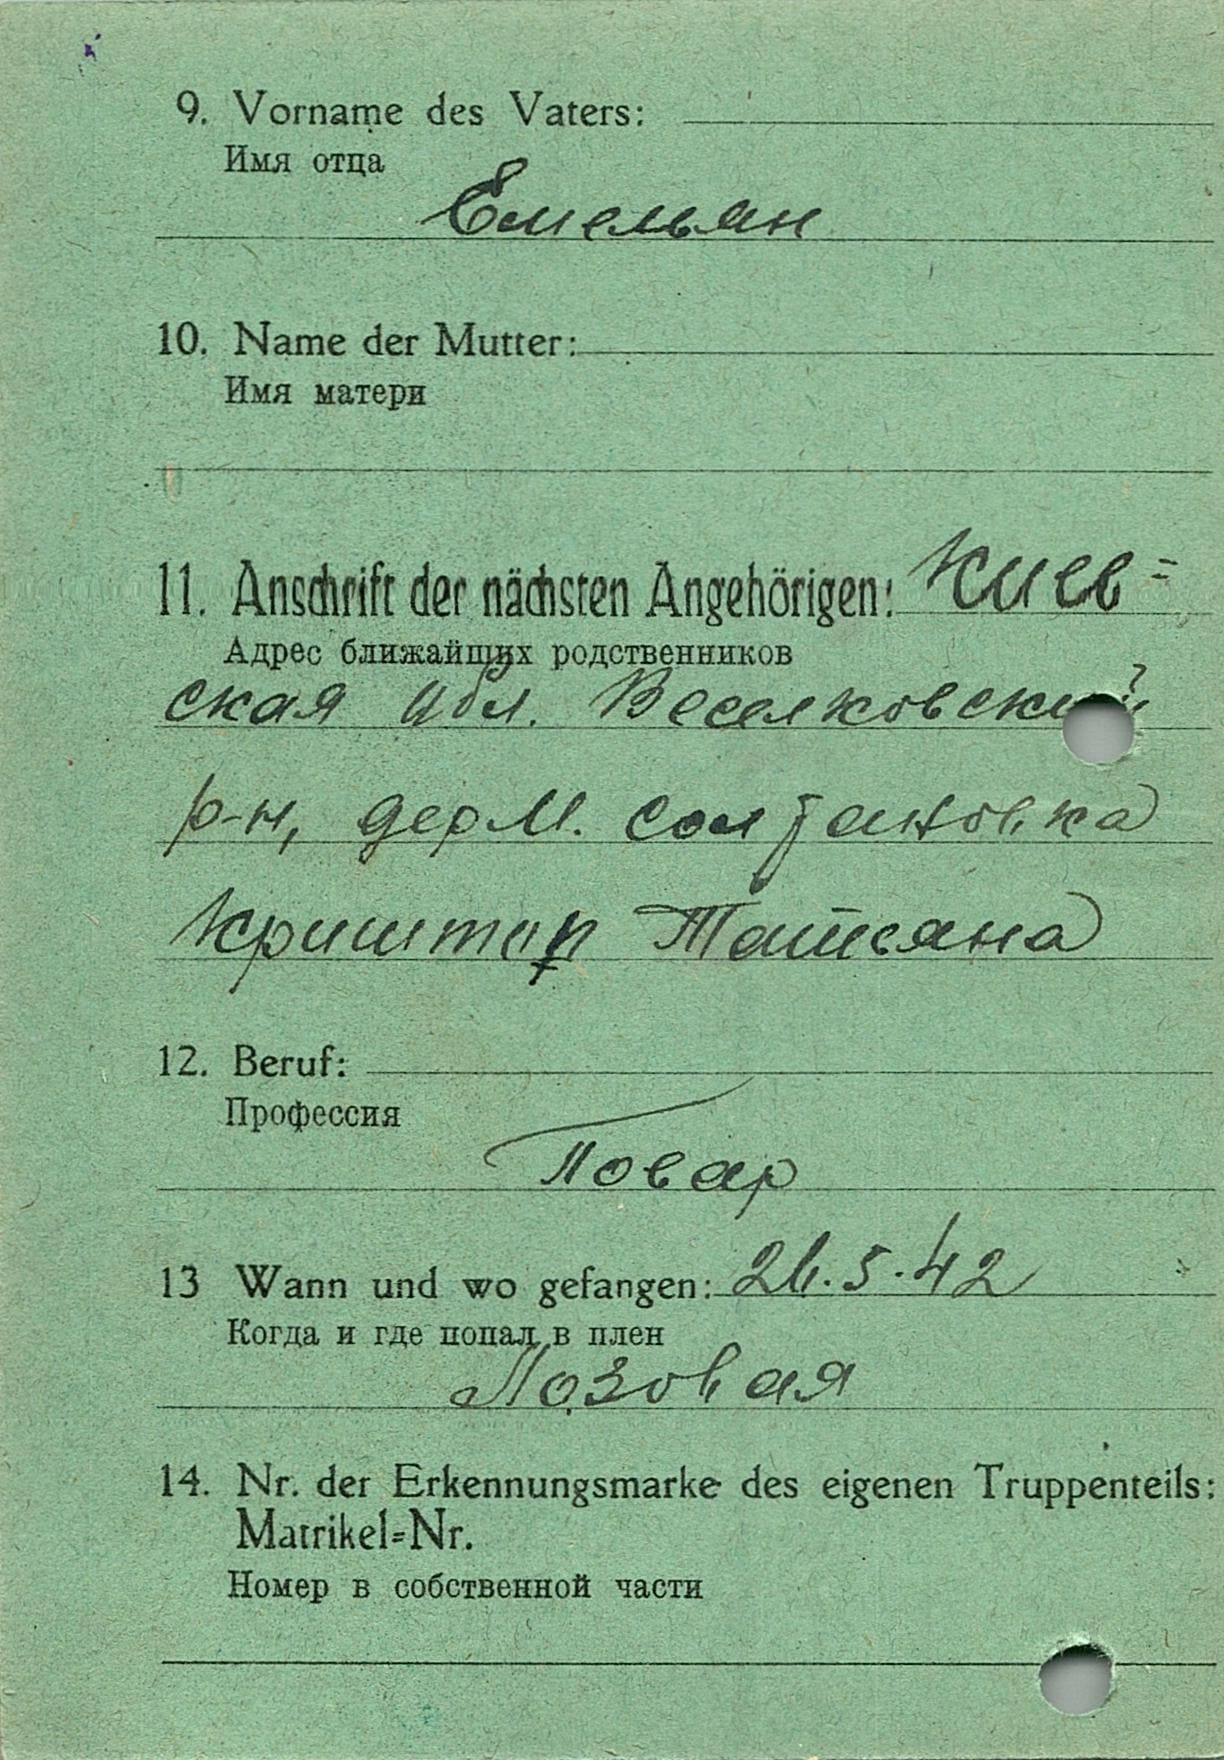 9. Vorname des Vaters:
Имя отца
Емельян
10. Name der Mutter:
Имя матери
11. Anschrift der nächsten Angehörigen: Киев=
Адрес ближайших родственников
ская обл. Веселковский
р-н, дер М. солтановка
Криштоп Татьяна
12. Beruf:
Профессия
Повар
13 Wann und wo gefangen: 26.5.42
Когда и где попал в плен
Лозовая
14. Nr. der Erkennungsmarke des eigenen Truppenteils:
Matrikel=Nr.
Номер в собственной части